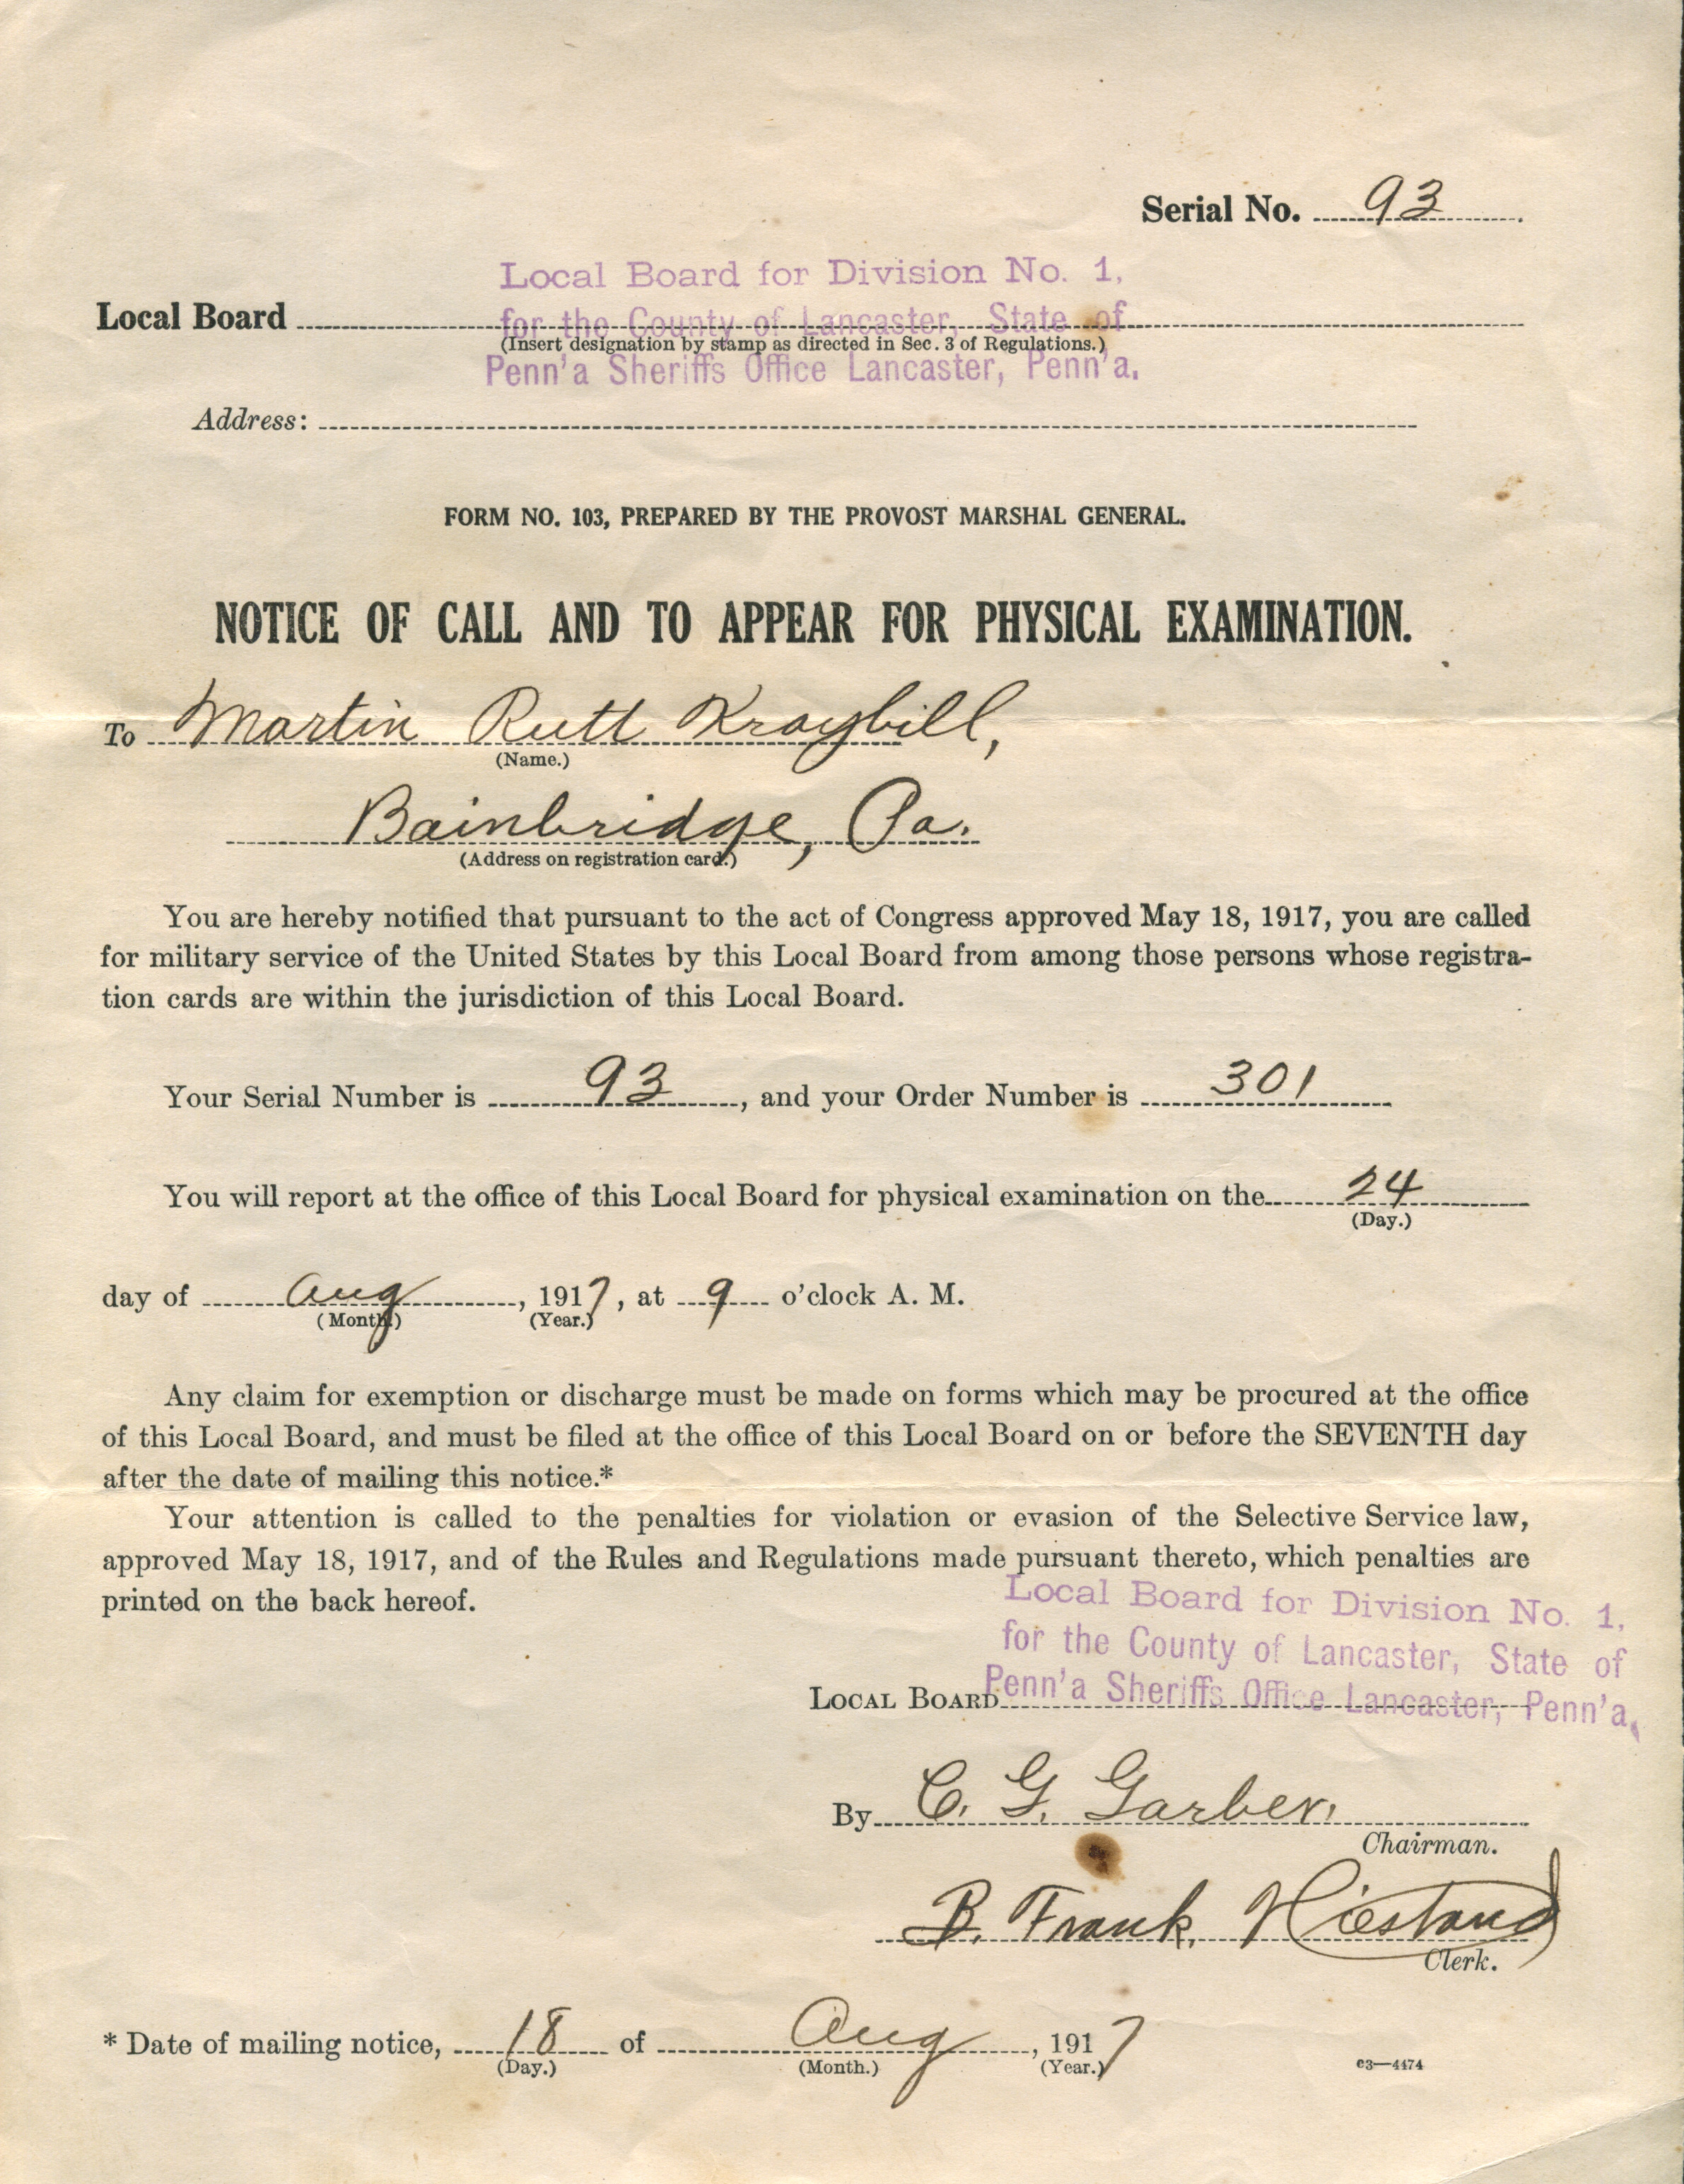 Serial No. 93.
Local Board for Division No. 1,
Local Board for the County of Lancaster, State of
(Insert designation by stamp as directed in Sec. 3 of Regulations.)
Penn'a Sheriffs Office Lancaster, Penn'a.
Address:
FORM NO. 103, PREPARED BY THE PROVOST MARSHAL GENERAL.
NOTICE OF CALL AND TO APPEAR FOR PHYSICAL EXAMINATION.
To Martin Rutt Kraybill,
(Name.)
Bainbridge, Pa.
(Address on registration card.)
You are hereby notified that pursuant to the act of Congress approved May 18, 1917, you are called
for military service of the United States by this Local Board from among those persons whose registra-
tion cards are within the jurisdiction of this Local Board.
Your Serial Number is 93, and your Order Number is 301
You will report at the office of this Local Board for physical examination on the 24
(Day.)
day of Aug, 1917, at 9 o'clock A. M.
(Month.) (Year.)
Any claim for exemption or discharge must be made on forms which may be procured at the office
of this Local Board, and must be filed at the office of this Local Board on or before the SEVENTH day
after the date of mailing this notice.*
Your attention is called to the penalties for violation or evasion of the Selective Service law,
approved May 18, 1917, and of the Rules and Regulations made pursuant thereto, which penalties are
printed on the back hereof.
Local Board for Division No. 1,
for the County of Lancaster, State of
LOCAL BOARD Penn'a Sheriffs Office Lancaster, Penn'a.
By C. G. Garber.
Chairman.
B. Frank Hiestand
Clerk.
* Date of mailing notice, 18 of Aug, 1917
(Day.) (Month.) (Year.)
c3—4474